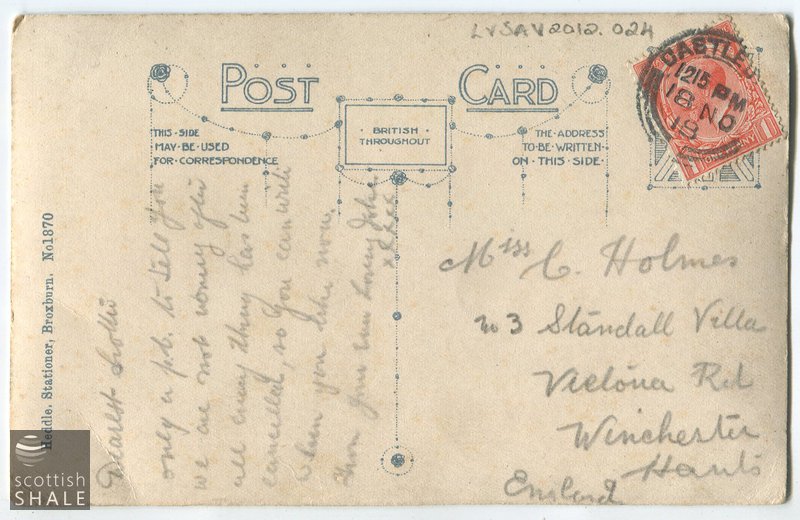 LVSAV2012.024
POST CARD
THIS SIDE
MAY BE USED
FOR CORRESPONDENCE
BRITISH
THROUGHOUT
THE ADDRESS
TO BE WRITTEN
ON THIS SIDE.
1215 PM
18 NO
18
Heddle, Stationer, Broxburn. No1870
Dearest
only a p.c. to tell you
we are not coming after
all away they has been
cancelled, so you can write
when you like now.
from your own loving John
xxxx
Miss C. Holmes
no 3 Standall Villa
Victoria Rd
Winchester
Hants
England
scottish
SHALE